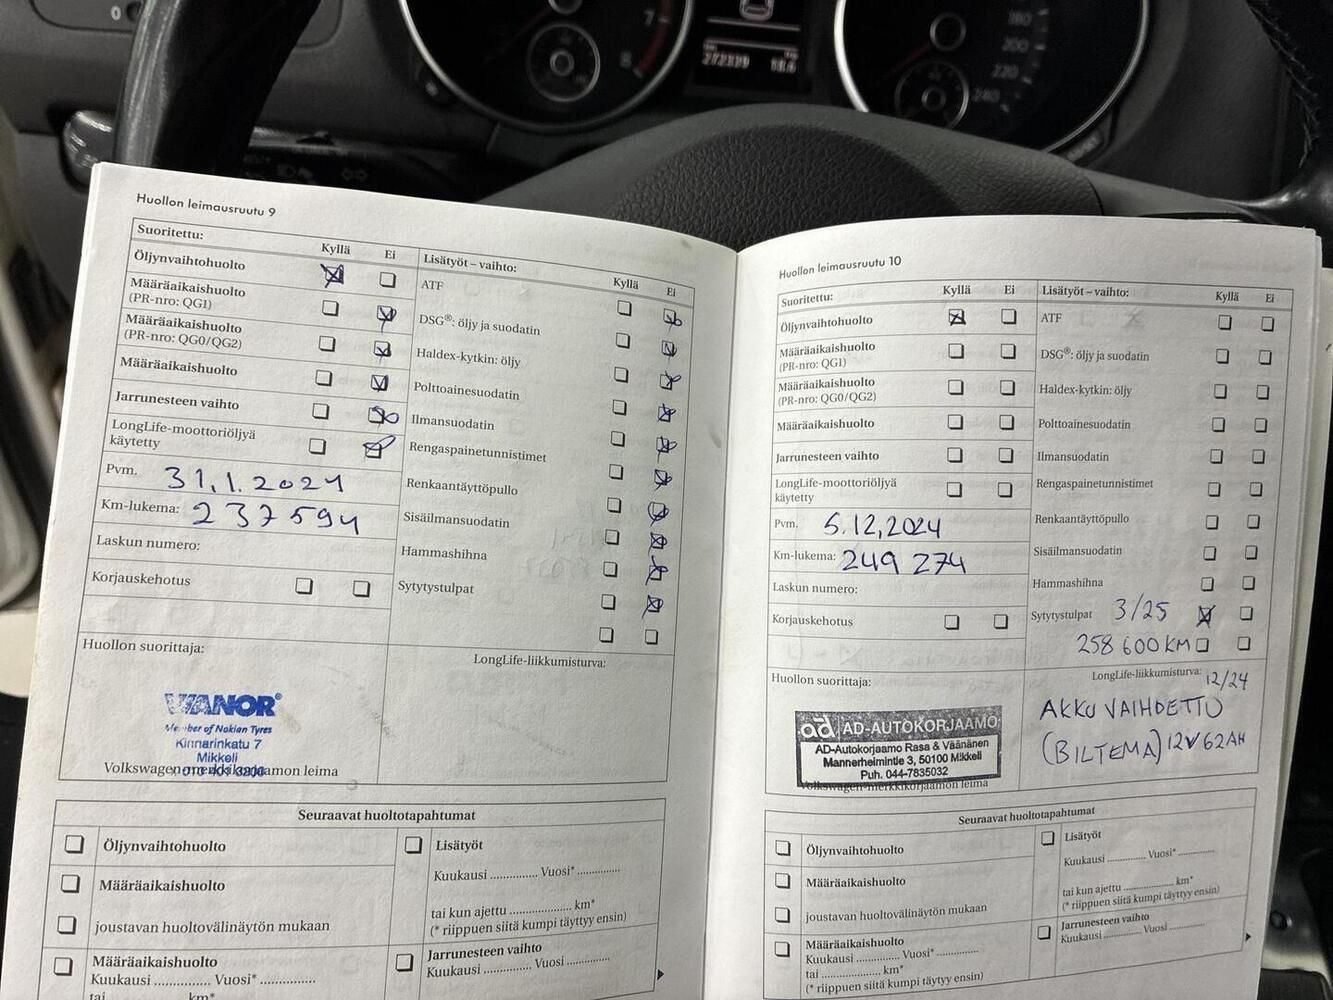 7
8
0
272339 18.6
180
200
220
240
Huollon leimausruutu 9
Suoritettu: Kyllä Ei
Öljynvaihtohuolto
Määräaikaishuolto
(PR-nro: QG1)
Määräaikaishuolto
(PR-nro: QG0/QG2)
Määräaikaishuolto
Jarrunesteen vaihto
LongLife-moottoriöljyä
käytetty
Pvm. 31.1.2024
Km-lukema: 237594
Laskun numero:
Korjauskehotus
Lisätyöt – vaihto: Kyllä Ei
ATF
DSG®: öljy ja suodatin
Haldex-kytkin: öljy
Polttoainesuodatin
Ilmansuodatin
Rengaspainetunnistimet
Renkaantäyttöpullo
Sisäilmansuodatin
Hammashihna
Sytytystulpat
Huollon suorittaja:
LongLife-liikkumisturva:
VIANOR®
Member of Nokian Tyres
Kinnarinkatu 7
Mikkeli
Volkswagen-merkkikorjaamon leima
Seuraavat huoltotapahtumat
Öljynvaihtohuolto
Määräaikaishuolto
joustavan huoltovälinäytön mukaan
Määräaikaishuolto
Kuukausi .............. Vuosi* ..............
tai .................... km*
Lisätyöt
Kuukausi .............. Vuosi* ............
tai kun ajettu .................... km*
(* riippuen siitä kumpi täyttyy ensin)
Jarrunesteen vaihto
Kuukausi ............ Vuosi ............
Huollon leimausruutu 10
Suoritettu: Kyllä Ei
Öljynvaihtohuolto
Määräaikaishuolto
(PR-nro: QG1)
Määräaikaishuolto
(PR-nro: QG0/QG2)
Määräaikaishuolto
Jarrunesteen vaihto
LongLife-moottoriöljyä
käytetty
Pvm. 5.12.2024
Km-lukema: 249 274
Laskun numero:
Korjauskehotus
Lisätyöt – vaihto: Kyllä Ei
ATF
DSG®: öljy ja suodatin
Haldex-kytkin: öljy
Polttoainesuodatin
Ilmansuodatin
Rengaspainetunnistimet
Renkaantäyttöpullo
Sisäilmansuodatin
Hammashihna
Sytytystulpat 3/25
258 600 KM
Huollon suorittaja:
LongLife-liikkumisturva: 12/24
AKKU VAIHDETTU
(BILTEMA) 12V 62AH
ad AD-AUTOKORJAAMO
AD-Autokorjaamo Rasa & Väänänen
Mannerheimintie 3, 50100 Mikkeli
Puh. 044-7835032
Volkswagen-merkkikorjaamon leima
Seuraavat huoltotapahtumat
Öljynvaihtohuolto
Määräaikaishuolto
joustavan huoltovälinäytön mukaan
Määräaikaishuolto
Kuukausi .............. Vuosi* ..............
tai .................... km*
(* riippuen siitä kumpi täyttyy ensin)
Lisätyöt
Kuukausi ............ Vuosi* ............
tai kun ajettu .................... km*
(* riippuen siitä kumpi täyttyy ensin)
Jarrunesteen vaihto
Kuukausi ............ Vuosi ............